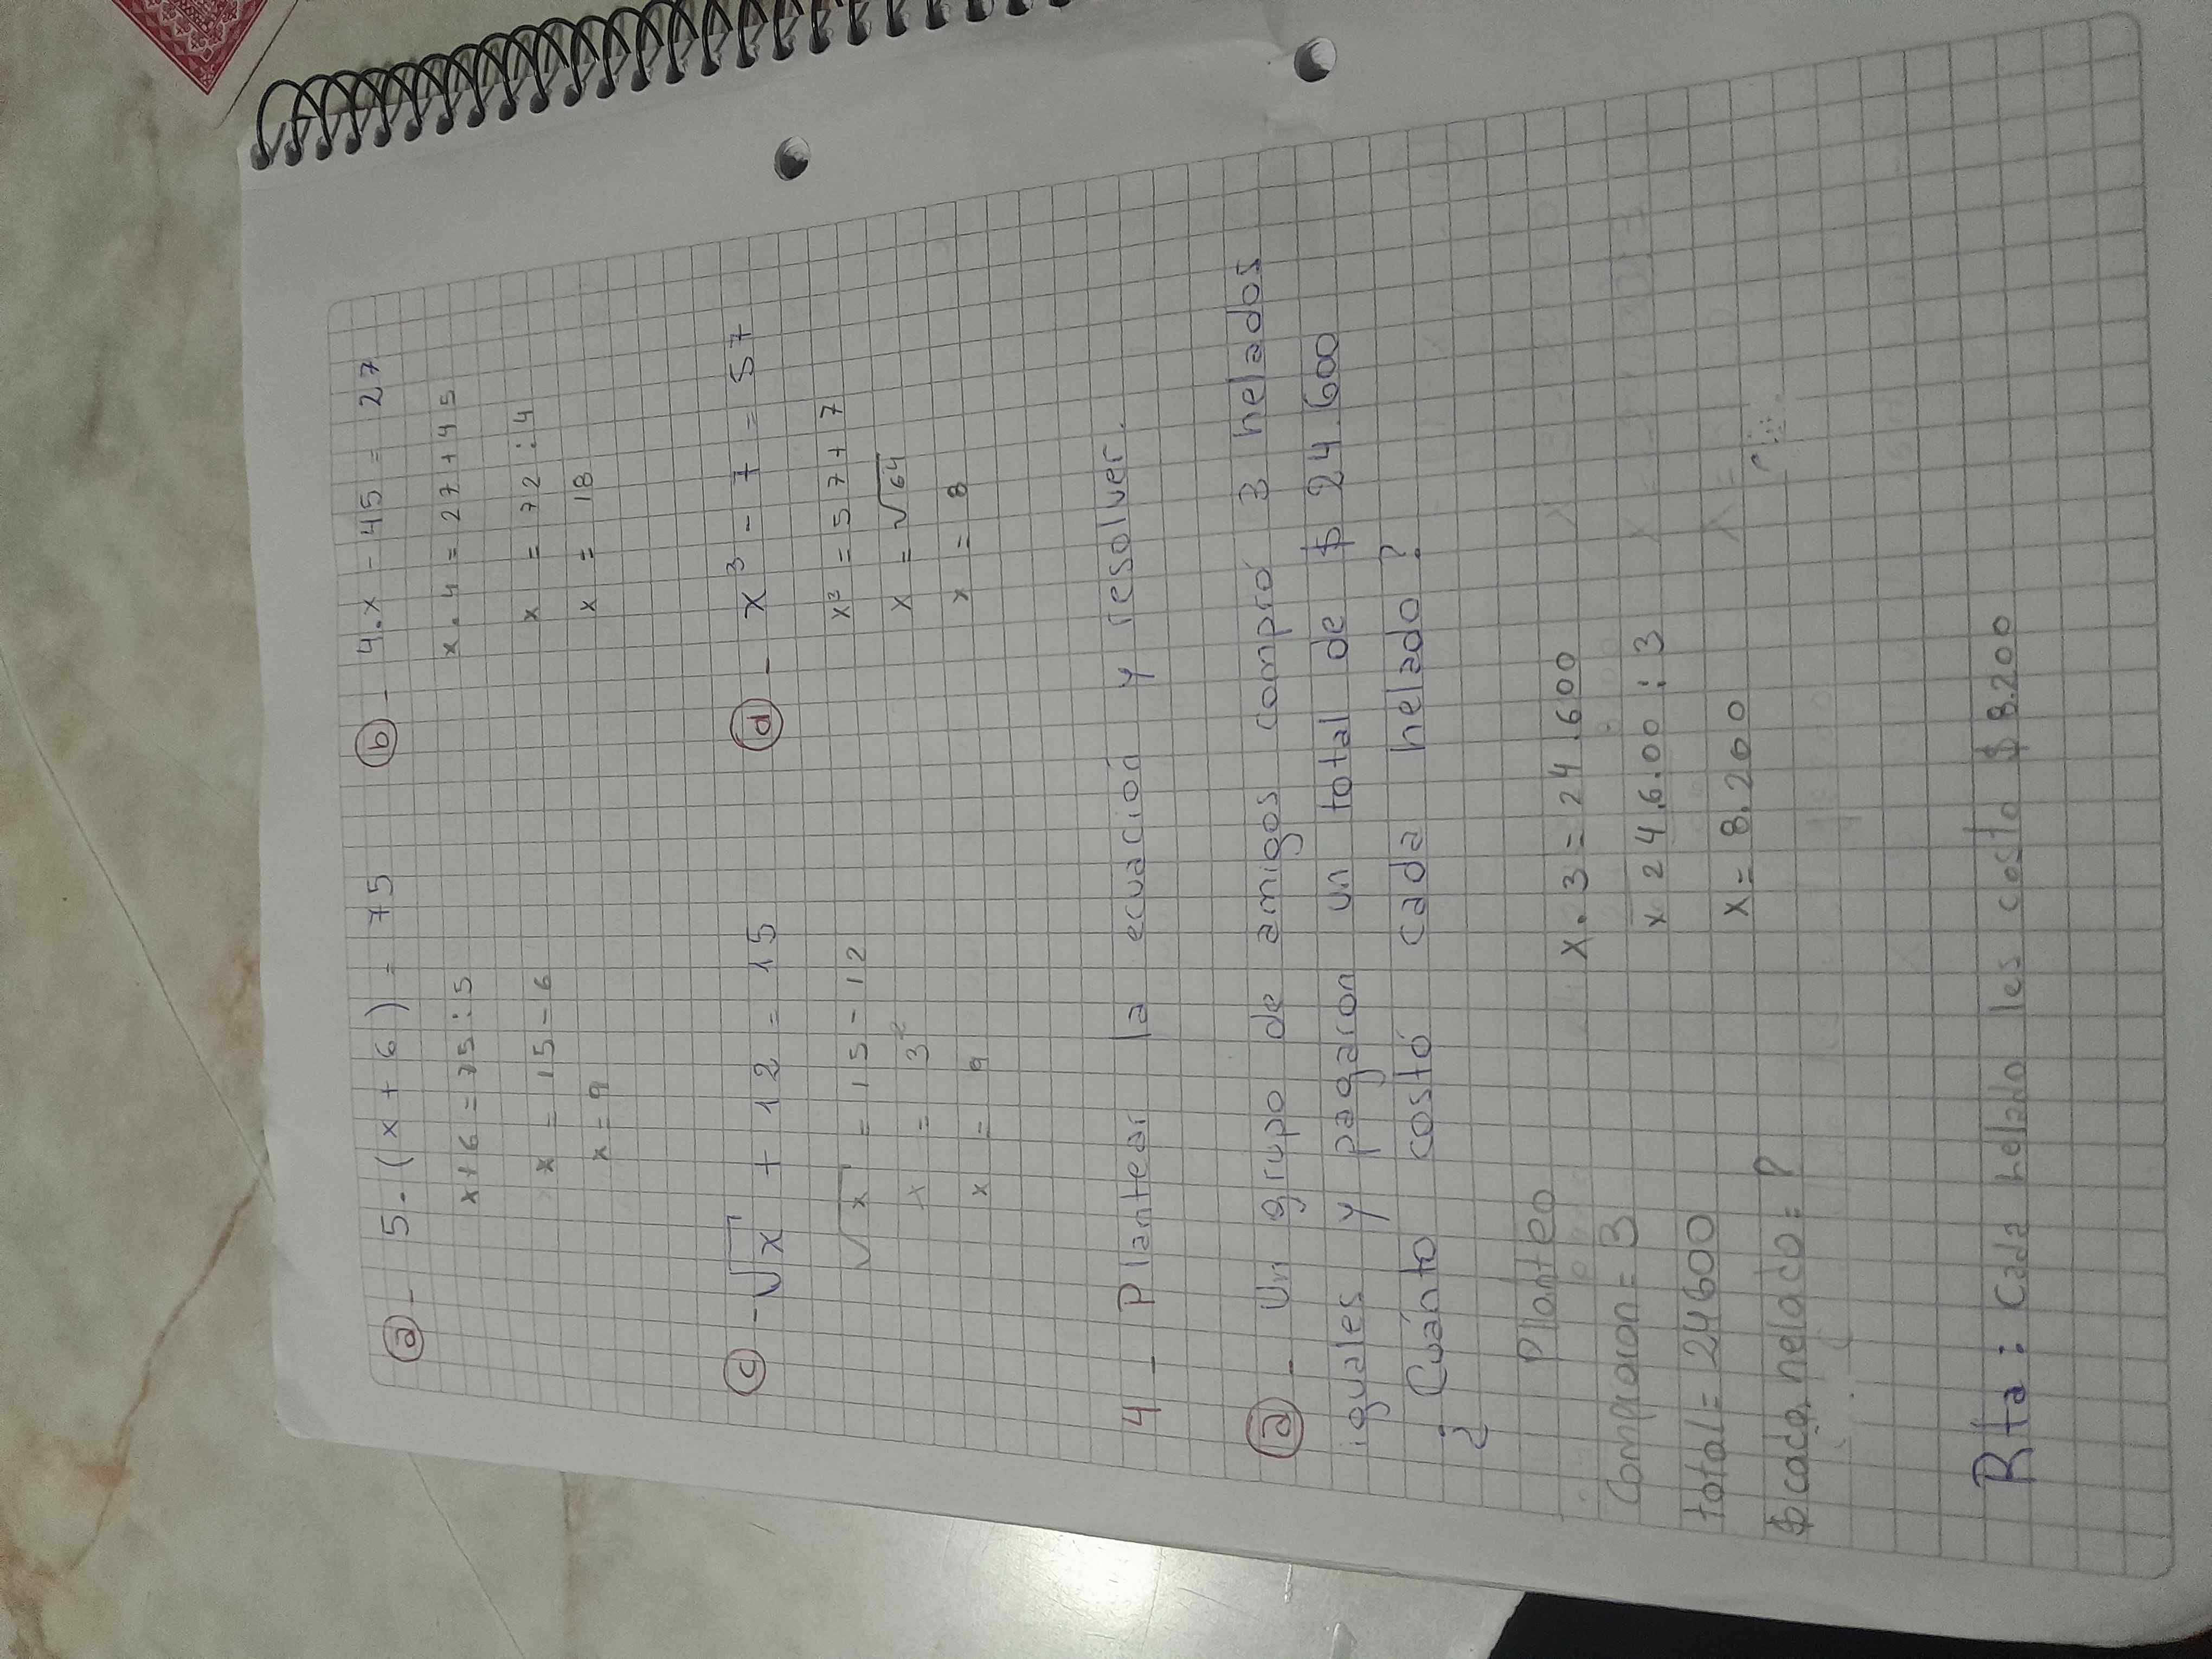 a - 5.(x+6) = 75
x+6 = 75:5
x = 15-6
x = 9
b - 4.x - 45 = 27
x.4 = 27+45
x = 72:4
x = 18
c - √x + 12 = 15
√x = 15-12
x = 3²
x = 9
d - x³ - 7 = 57
x² = 57+7
x = √64
x = 8
4 - Plantear la ecuación y resolver.
a - Un grupo de amigos compró 3 helados
iguales y pagaron un total de $ 24.600
¿Cuánto costó cada helado?
Planteo
Compraron = 3
total = 24600
$ cada helado = ?
x.3 = 24.600
x 24.6.00 : 3
x = 8.200
Rta: Cada helado les costo $ 8.200